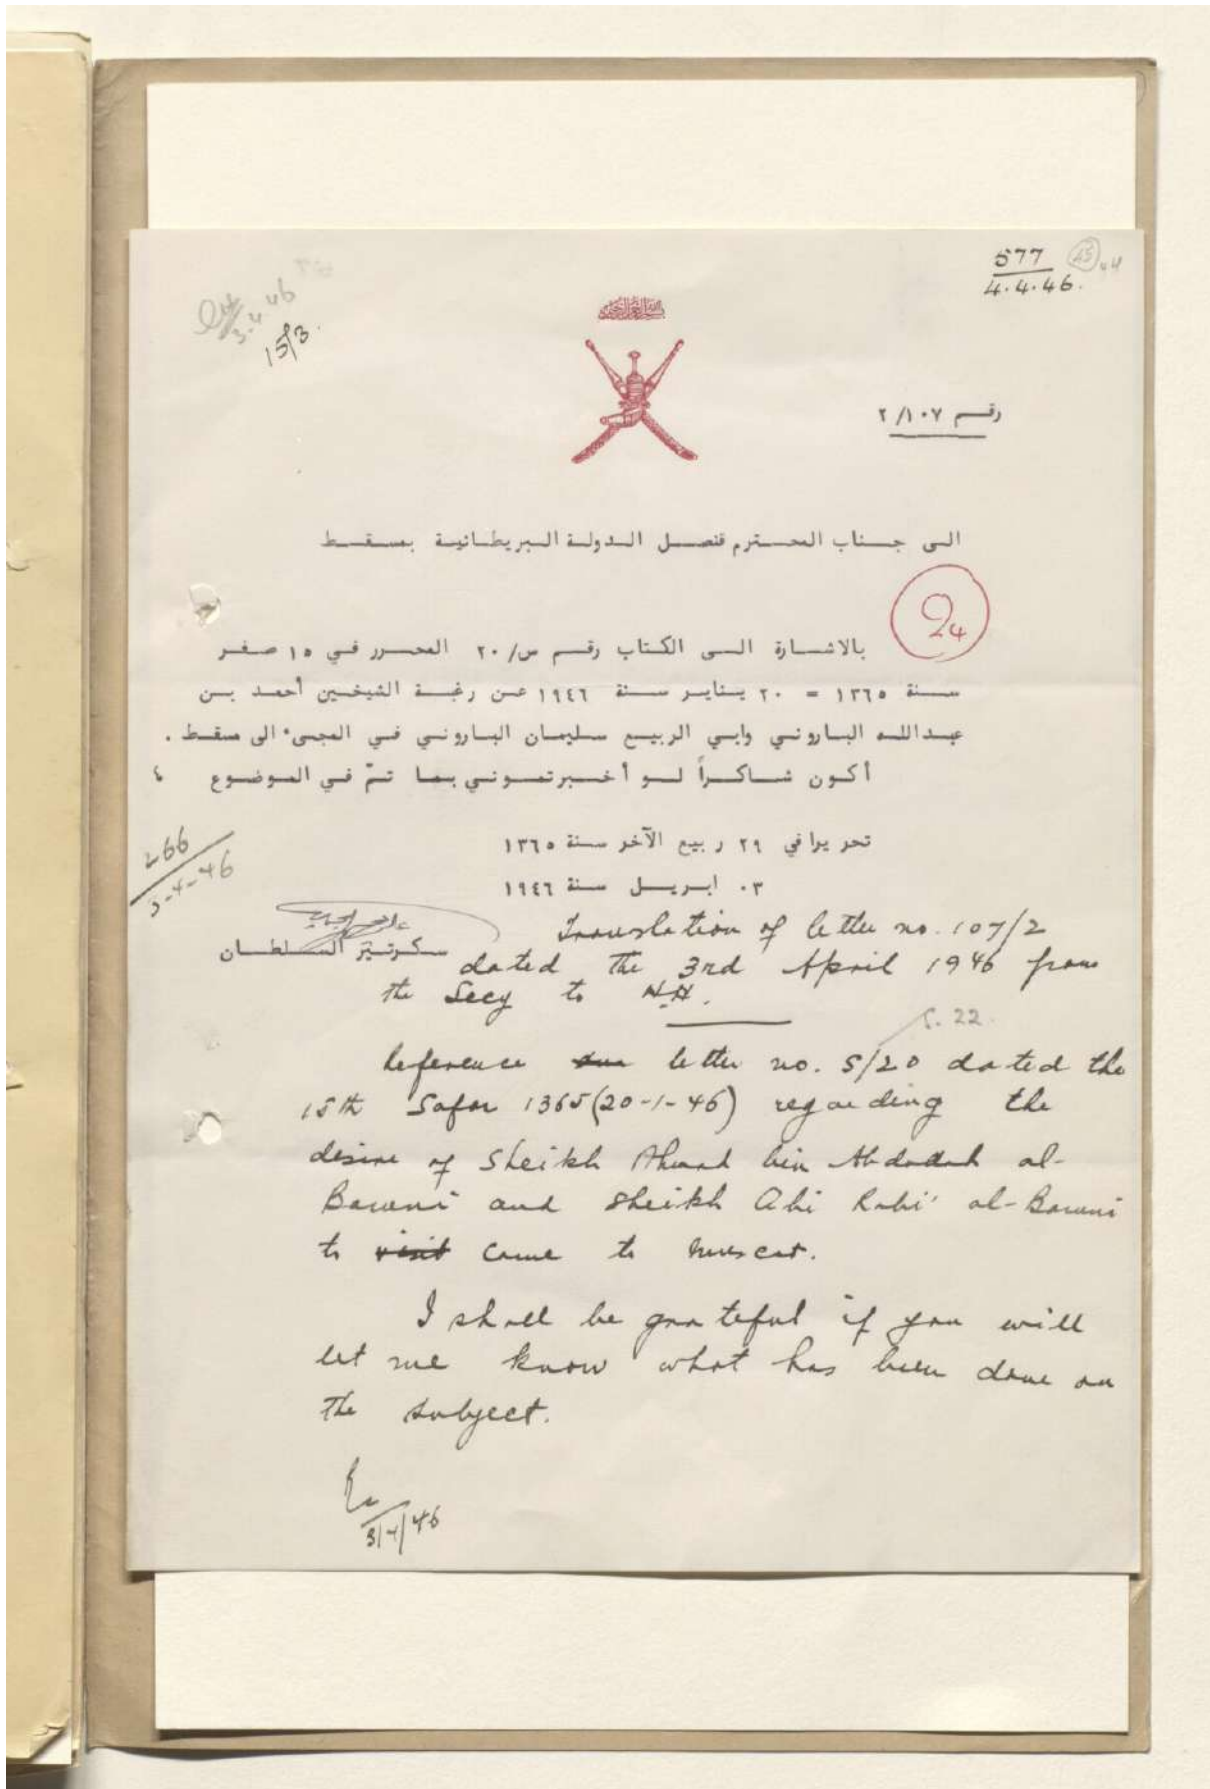 577
4.4.46.
3.4.46
15/3.
رقم ٢/١٠٧
الى جناب المحترم قنصل الدولة البريطانية بمسقط
24
بالاشارة الى الكتاب رقم س/٢٠ المحرر في ١٥ صفر
سنة ١٣٦٥ = ٢٠ يناير سنة ١٩٤٦ عن رغبة الشيخين أحمد بن
عبدالله الباروني وابي الربيع سليمان الباروني في المجىء الى مسقط .
أكون شاكراً لو أخبرتموني بما تمّ في الموضوع ٤
266
3-4-46
تحريرا في ٢٩ ربيع الآخر سنة ١٣٦٥
٠٣ ابريل سنة ١٩٤٦
سكرتير السلطان
Translation of letter no. 107/2
dated the 3rd April 1946 from
the Secy to H.H.
S. 22.
Reference letter no. S/20 dated the
15th Safar 1365 (20-1-46) regarding the
desire of Sheikh Ahmad bin Abdullah al-
Baruni and Sheikh Abi Rabi' al-Baruni
to visit come to Muscat.
I shall be grateful if you will
let me know what has been done on
the subject.
3/4/46